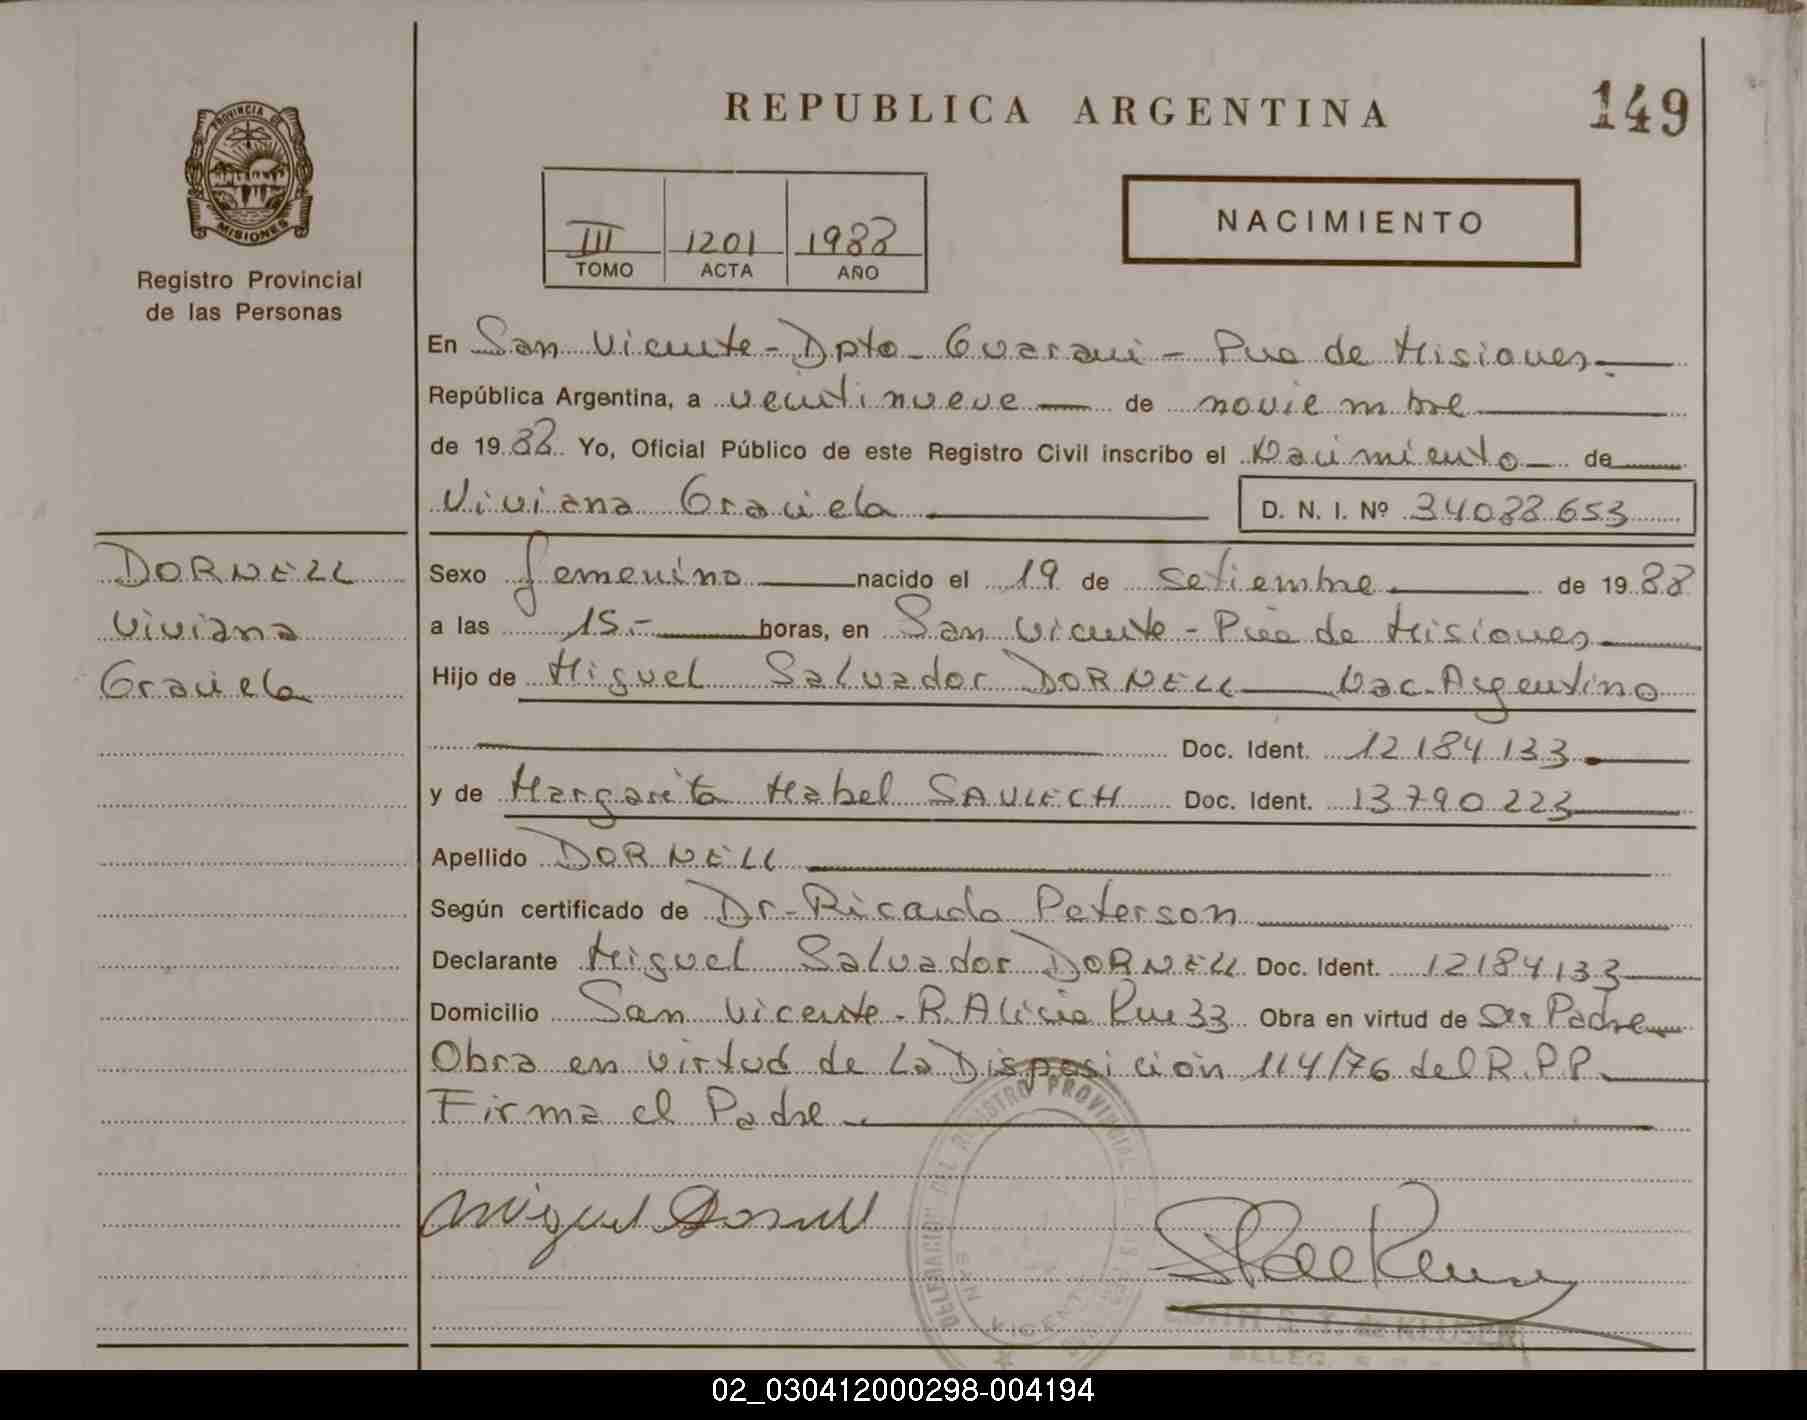 PROVINCIA DE
MISIONES
Registro Provincial
de las Personas
REPUBLICA ARGENTINA
149
III 1201 1988
TOMO ACTA AÑO
NACIMIENTO
En San Vicente - Dpto - Guarani - Pcia de Misiones
República Argentina, a veintinueve de noviembre
de 19 88 Yo, Oficial Público de este Registro Civil inscribo el Nacimiento de
Viviana Graciela D. N. I. Nº 34088653
DORNELL
Viviana
Graciela
Sexo femenino nacido el 19 de setiembre de 19 88
a las 15.- horas, en San Vicente - Pcia de Misiones
Hijo de Miguel Salvador DORNELL Nac. Argentino
Doc. Ident. 12184133
y de Margarita Mabel Doc. Ident. 13790223
Apellido DORNELL
Según certificado de Dr. Ricardo Peterson
Declarante Miguel Salvador DORNELL Doc. Ident. 12184133
Domicilio San Vicente - R. Alicia 33 Obra en virtud de Ser Padre
Obra en virtud de la Disposición 114/76 del R.P.P.
Firma el Padre
Miguel Dornell
DELEGACION DEL REGISTRO PROVINCIAL
SAN VICENTE
02_030412000298-004194